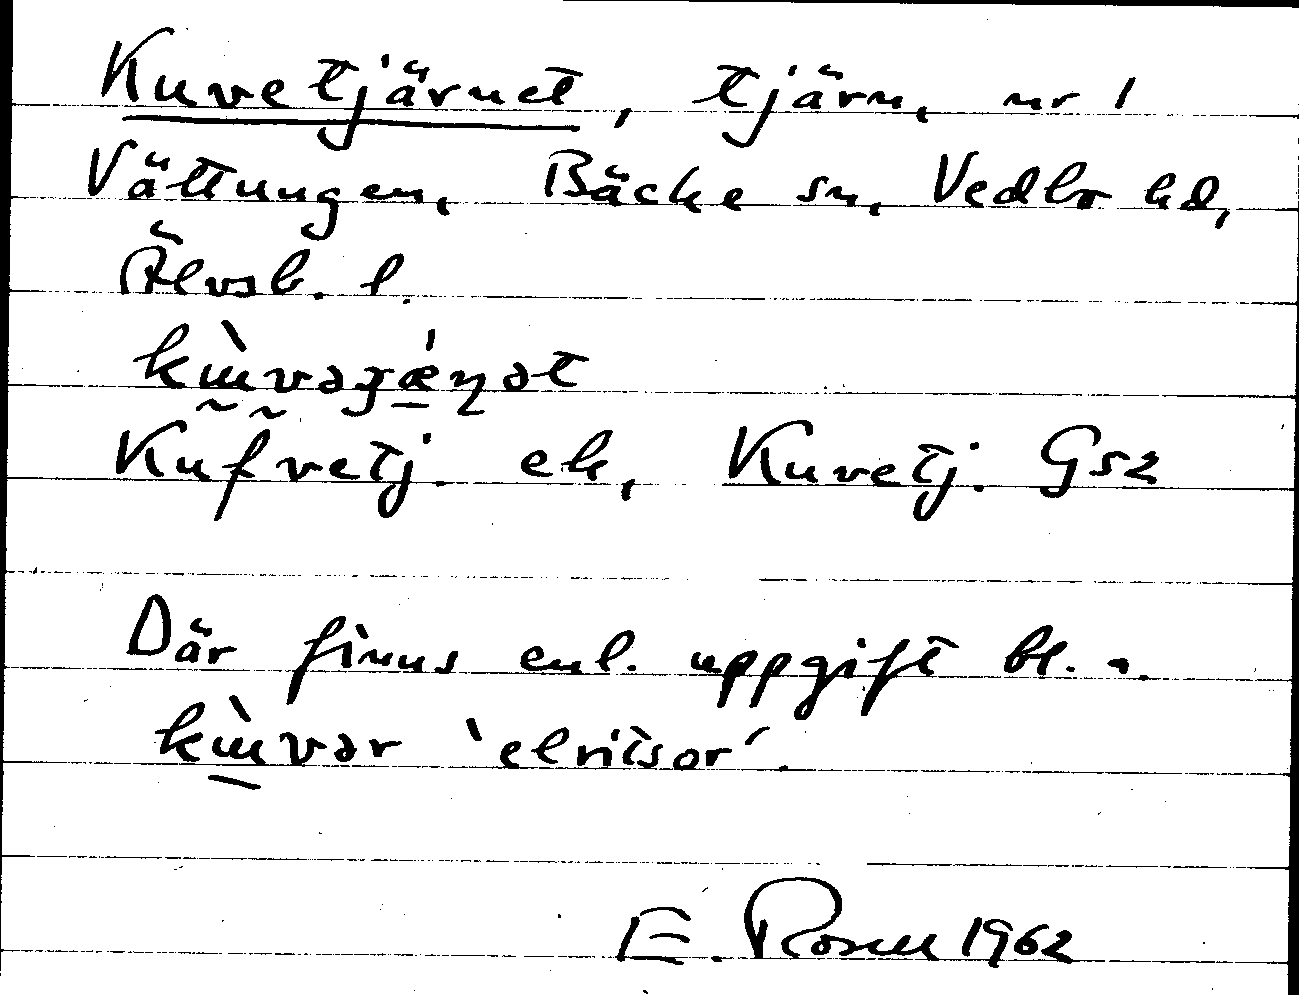 Kuvetjärnet, tjärn, nr 1
Vättungen, Bäcke sn, Vedbo hd,
Älvsb. l.
kɯ̀vəʒǽɳət
Kufvetj. ek, Kuvetj. Gs2
Där finns enl. uppgift bl. a.
kɯ̀vər 'elritsor'.
E. Rosell 1962